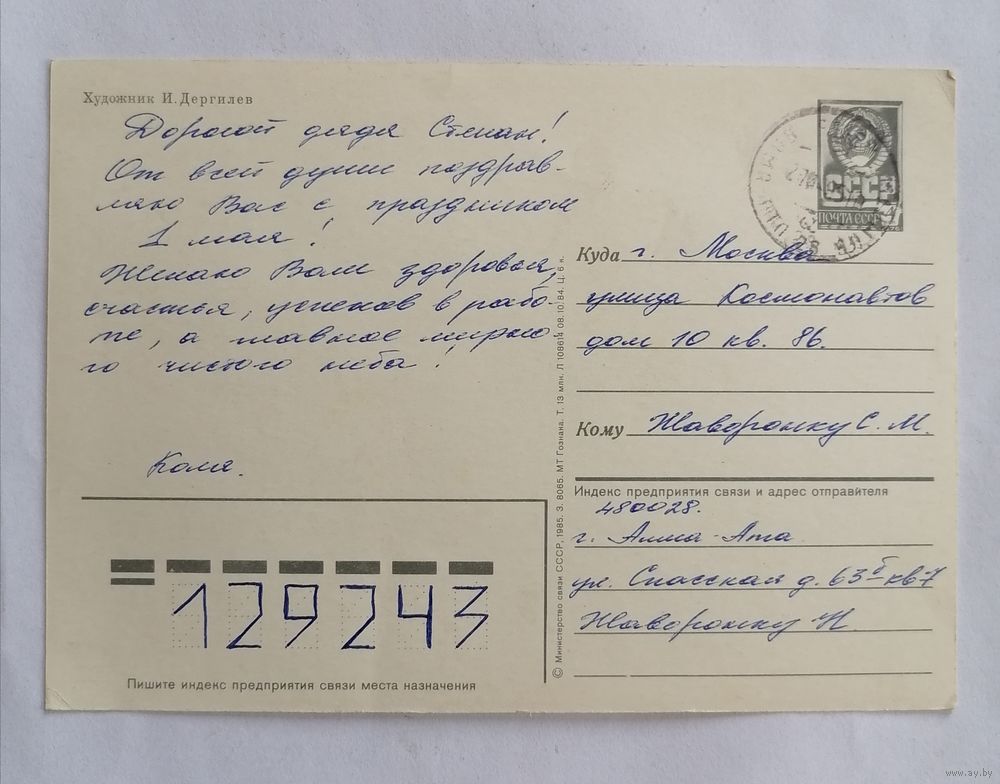 Художник И. Дергилев
Дорогой дядя Степан!
От всей души поздрав-
ляю Вас с праздником
1 мая!
Желаю Вам здоровья,
счастья, успехов в рабо-
те, а главное мирно
го чистого неба!
Коля.
СССР
ПОЧТА СССР
Куда г. Москва
улица Космонавтов
дом 10 кв. 86.
Кому Жаворонку С. М.
Индекс предприятия связи и адрес отправителя
480028.
г. Алма-Ата
ул. Спасская д. 63б кв 7
Жаворонку Н
129243
Пишите индекс предприятия связи места назначения
© Министерство связи СССР, 1985. З. 8065. МТ Гознака. Т. 13 млн. Л 108614 08.10.84. Ц. 6 к.
www.ay.by